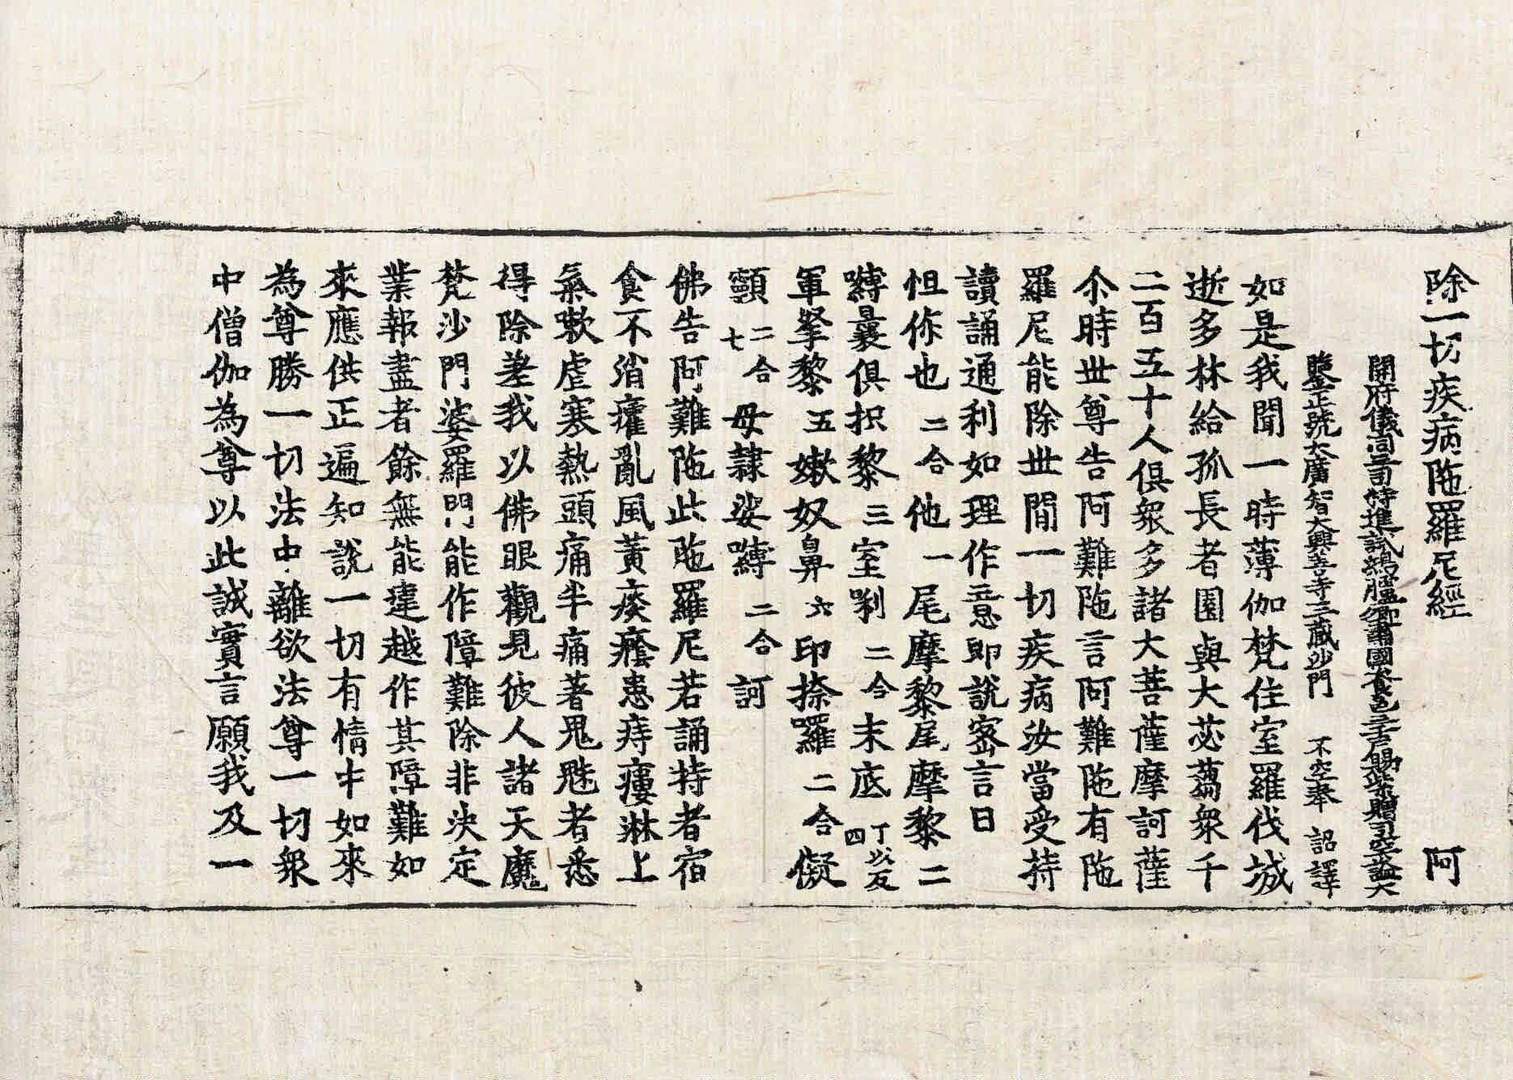 除一切疾病陁羅尼經 阿
開府儀同三司特進試鴻臚卿肅國公食邑三千戶賜紫贈司空謚大
鑒正號大廣智大興善寺三藏沙門 不空奉 詔譯
如是我聞一時薄伽梵住室羅伐城
逝多林給孤長者園與大苾蒭衆千
二百五十人俱衆多諸大菩薩摩訶薩
尒時世尊告阿難陁言阿難陁有陁
羅尼能除世間一切疾病汝當受持
讀誦通利如理作意即說密言曰
怛你也二合他一尾摩黎尾摩黎二
嚩曩俱枳黎三室唎二合末底丁以反四
軍拏黎五嫰奴鼻六印捺囉二合儗
顎二合七母隷娑嚩二合訶
佛告阿難陁此陁羅尼若誦持者宿
食不消癨亂風黃痰癊患痔瘻淋上
氣嗽虐寒熱頭痛半痛著鬼魅者悉
得除差我以佛眼觀見彼人諸天魔
梵沙門婆羅門能作障難除非决定
業報盡者餘無能違越作其障難如
來應供正遍知說一切有情中如來
為尊勝一切法中離欲法尊一切衆
中僧伽為尊以此誠實言願我及一